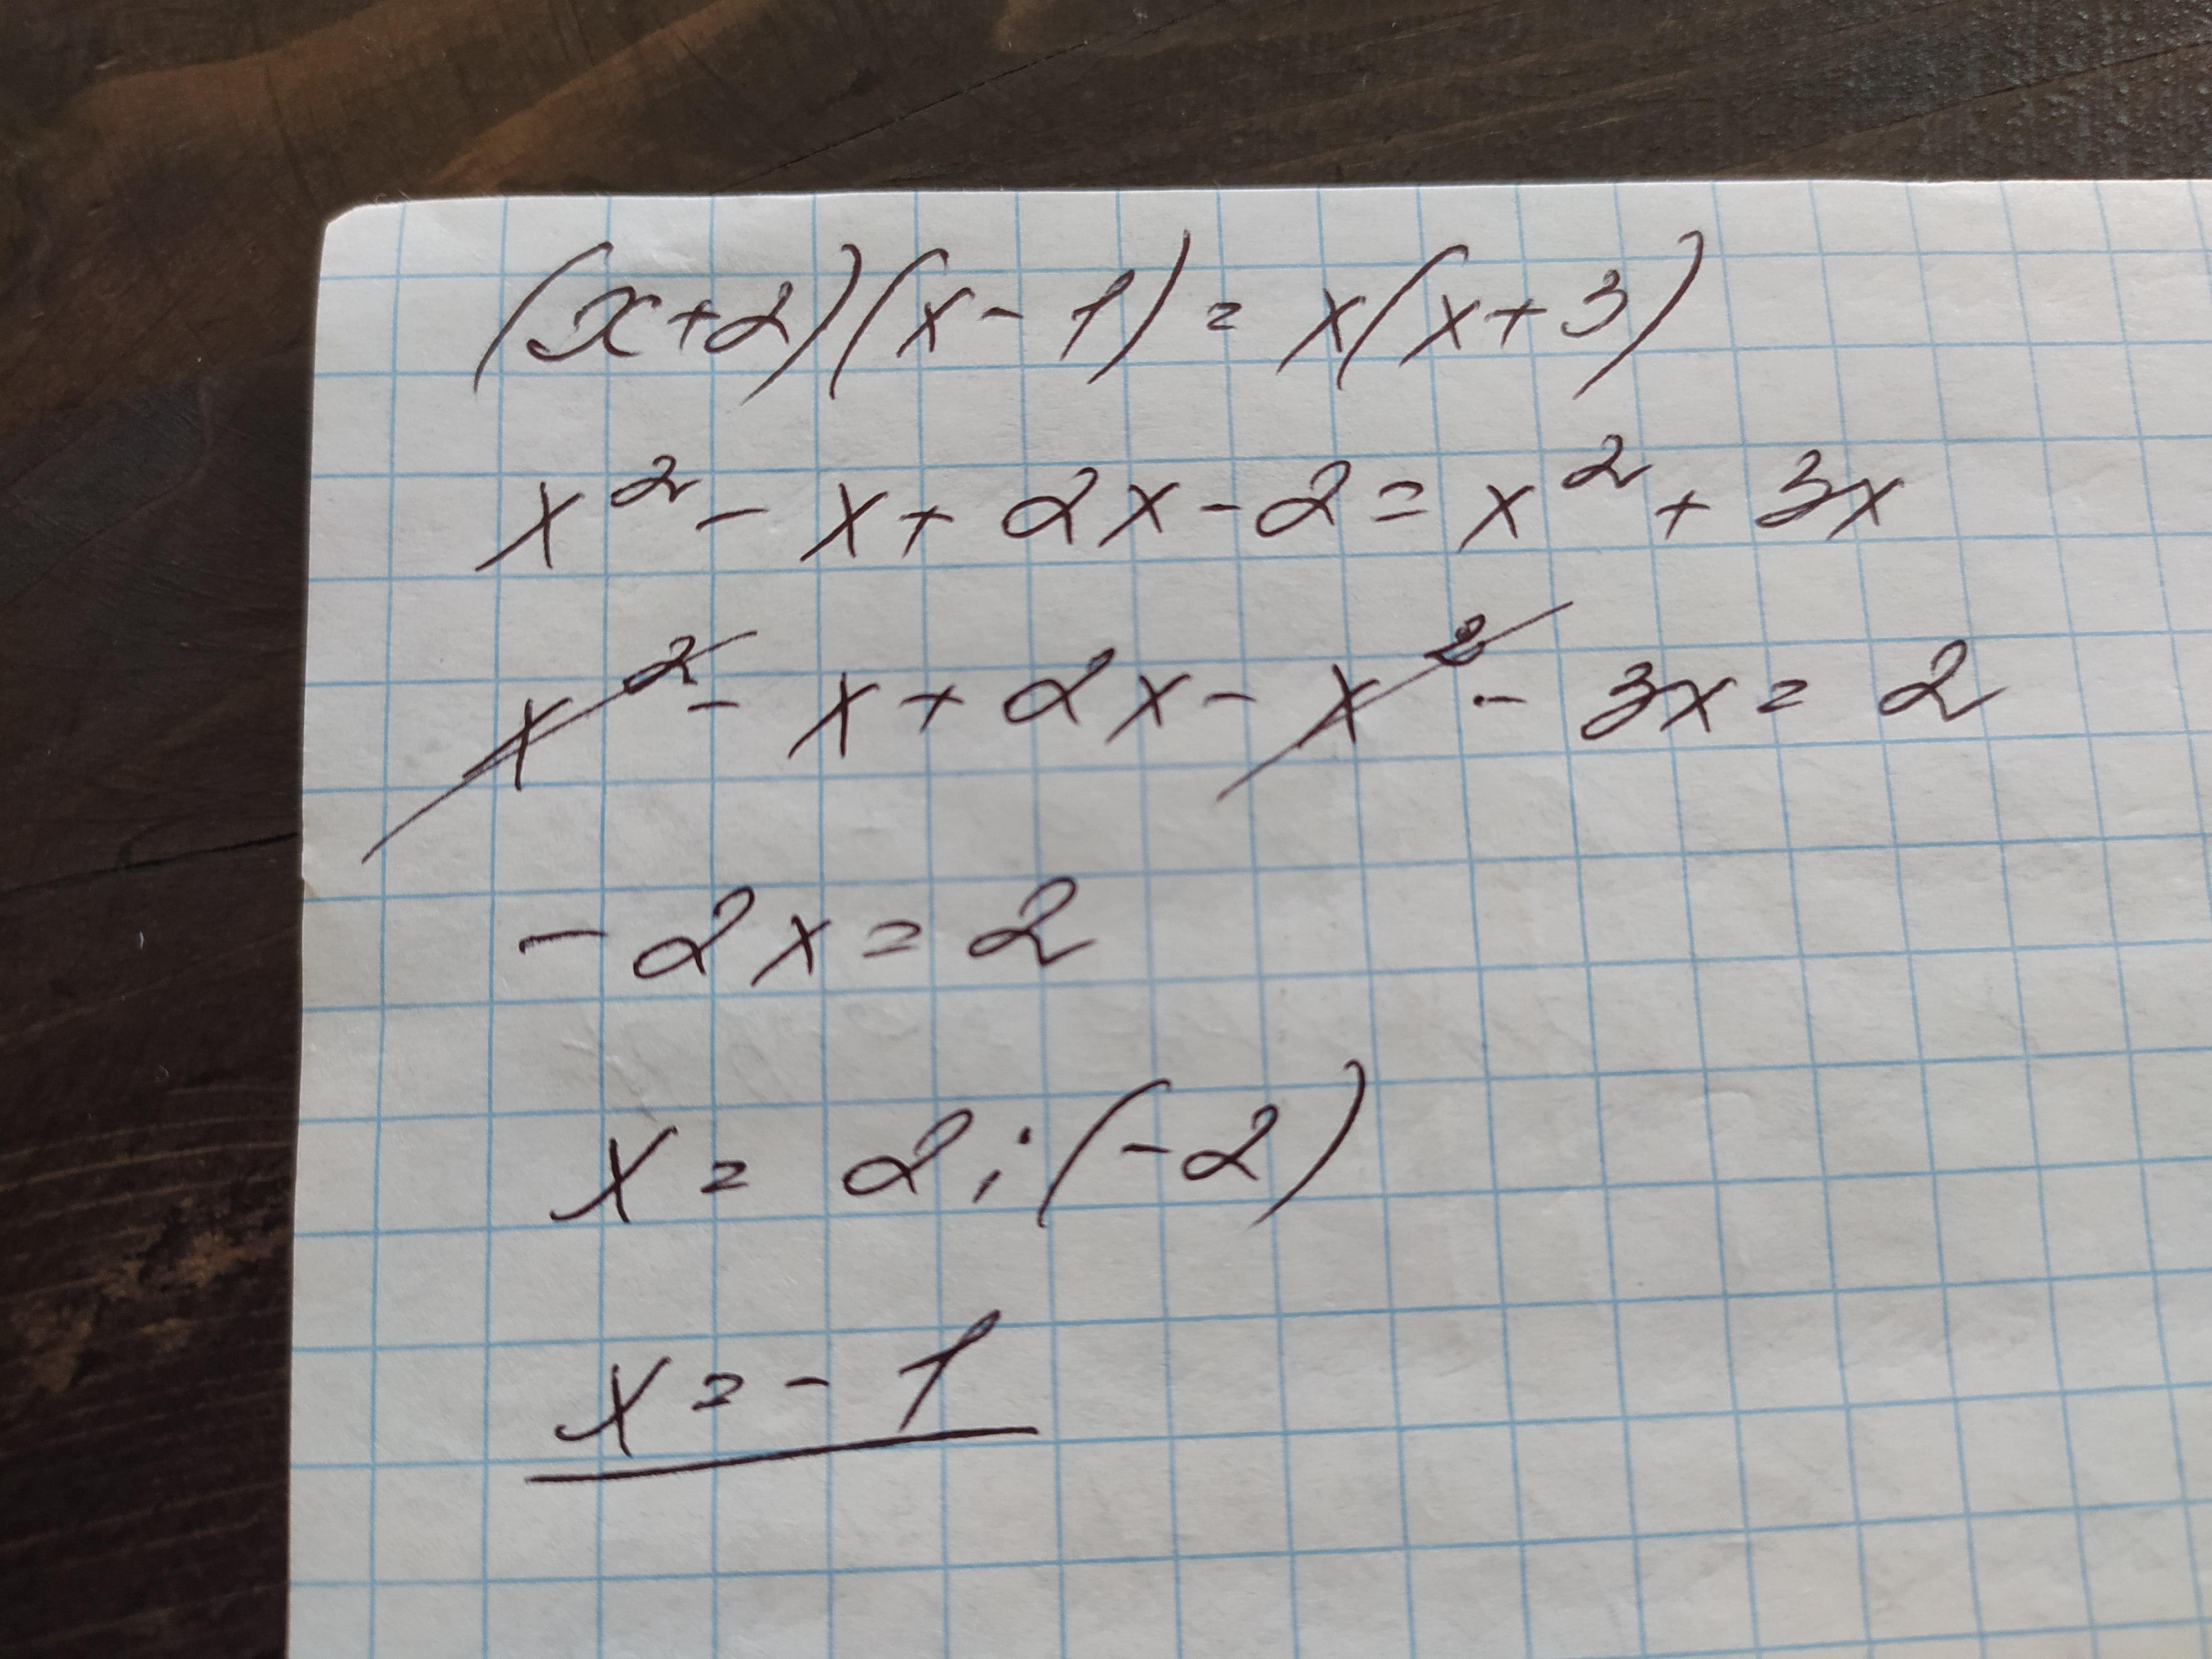 (x+2)(x-1)=x(x+3)
x²-x+2x-2=x²+3x
x²-x+2x-x²-3x=2
-2x=2
x=2:(-2)
x=-1